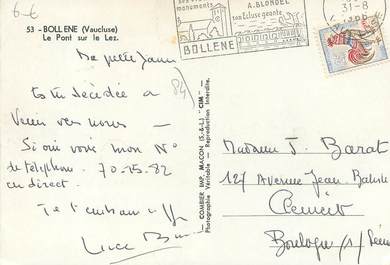 6-6
53 - BOLLENE (Vaucluse)
Le Pont sur le Lez.
monuments
A. BLONDEL
son Ecluse géante
BOLLENE
31-8
Ma petite
Es tu décidée à
Venir vers nous —
Si oui voici mon N°
de téléphone. 70-15-82
en direct.
Je t'embrasse
(84)
COMBIER IMP. MACON (S.-&-L.) "CIM"
Photographie Véritable - Reproduction Interdite.
Madame J. Barat
127 Avenue Jean Baptiste
Clément
Boulogne s/ Seine